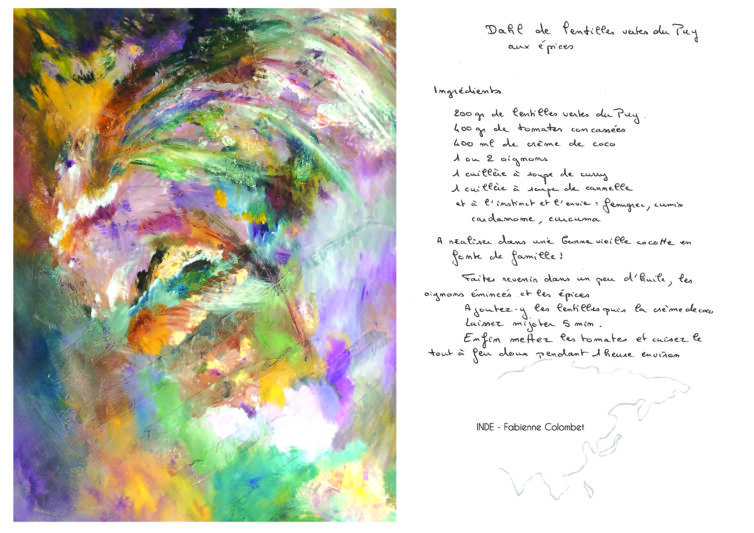 Dahl de lentilles vertes du Puy
aux épices
Ingrédients
200 gr de lentilles vertes du Puy.
400 gr de tomates concassées
400 ml de crème de coco
1 ou 2 oignons
1 cuillère à soupe de curry
1 cuillère à soupe de cannelle
et à l'instinct et l'envie : fenugrec, cumin
cardamome, curcuma
A réaliser dans une bonne vieille cocotte en
fonte de famille !
Faites revenir dans un peu d'huile, les
oignons émincés et les épices
Ajoutez-y les lentilles puis la crème de coco
Laissez mijoter 5 min.
Enfin mettez les tomates et cuisez le
tout à feu doux pendant 1 heure environ
INDE - Fabienne Colombet